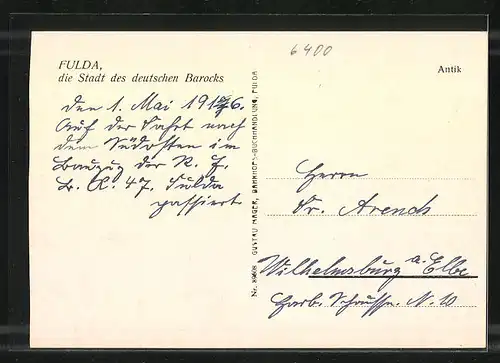 6400
FULDA,
die Stadt des deutschen Barocks
Antik
Den 1. Mai 1916.
Auf der Fahrt nach
dem Südosten im
Bauzug der K. F.
B. A. 47. Fulda
passiert
Nr. 89608 GUSTAV MAGER, BAHNHOFS-BUCHHANDLUNG, FULDA
Herrn
Fr. Arend
Wilhelmsburg a. Elbe
Harb. Chaussee. N. 10